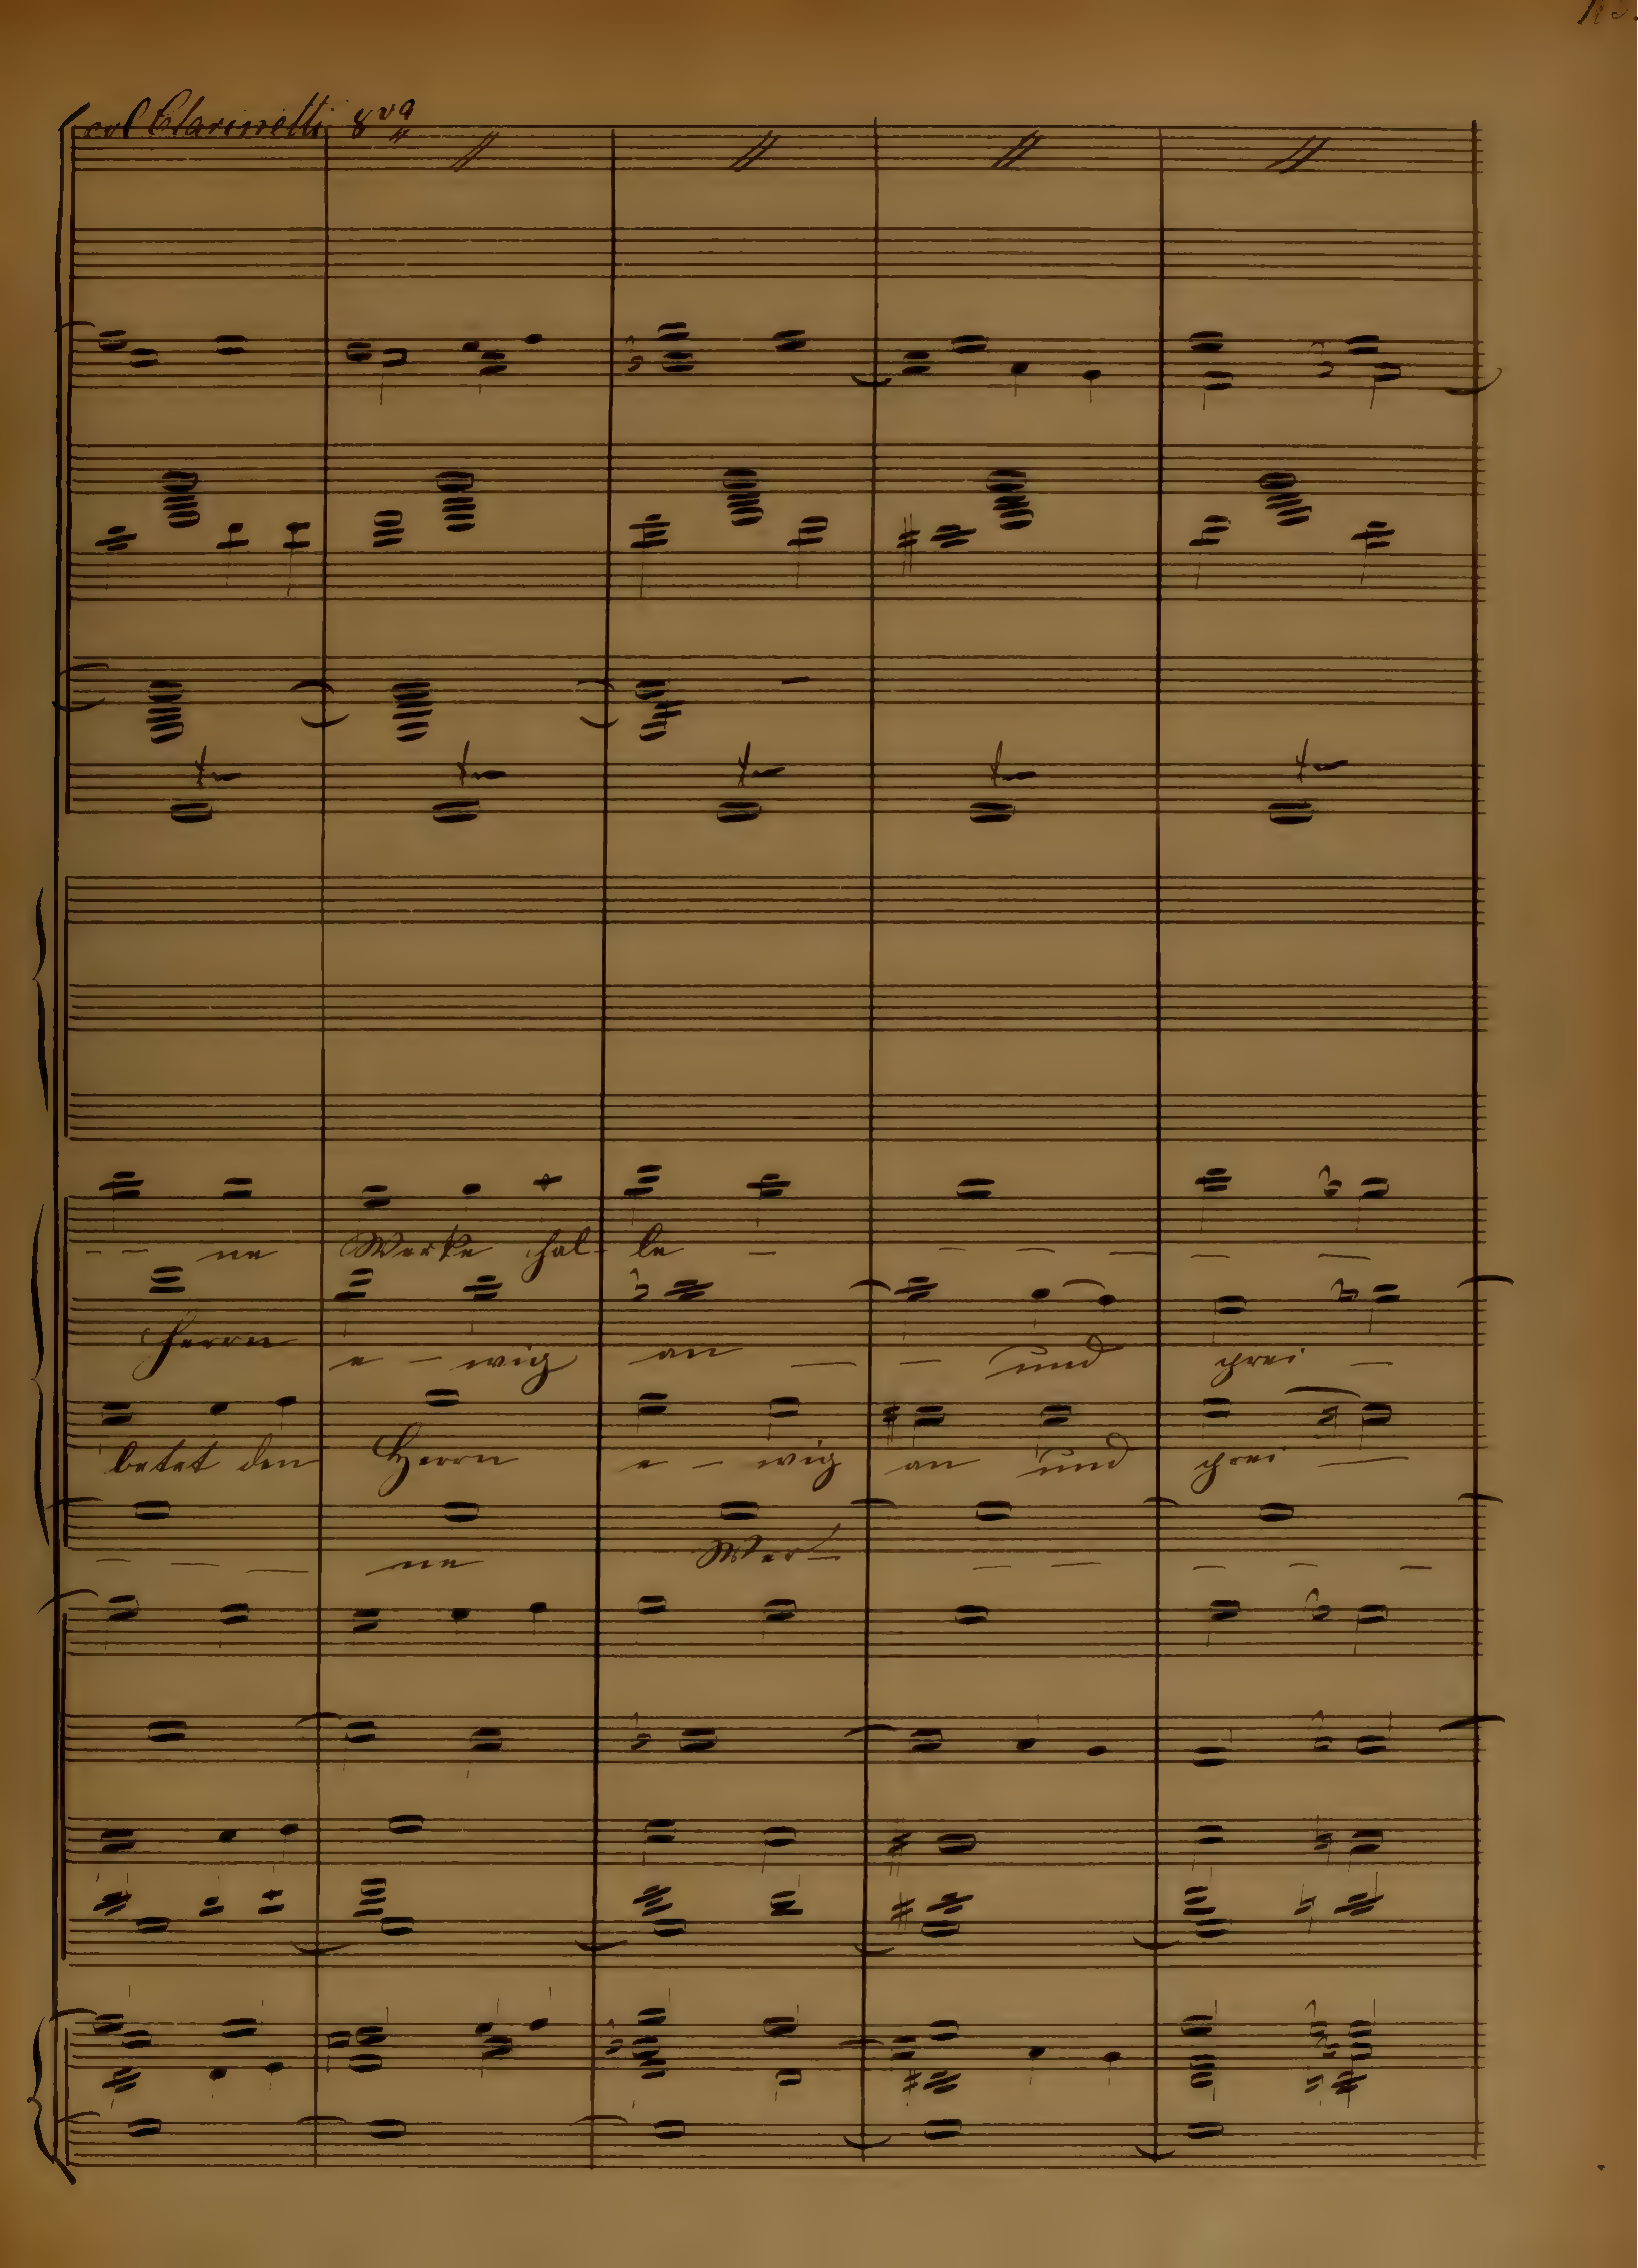 col Clarinetti 8va
tr tr tr tr tr
- - ne Werke hal- le - - - - - -
Herrn e - wig an - - und prei -
betet den Herrn e - wig an und prei -
- - - ne Wer- - - - - -